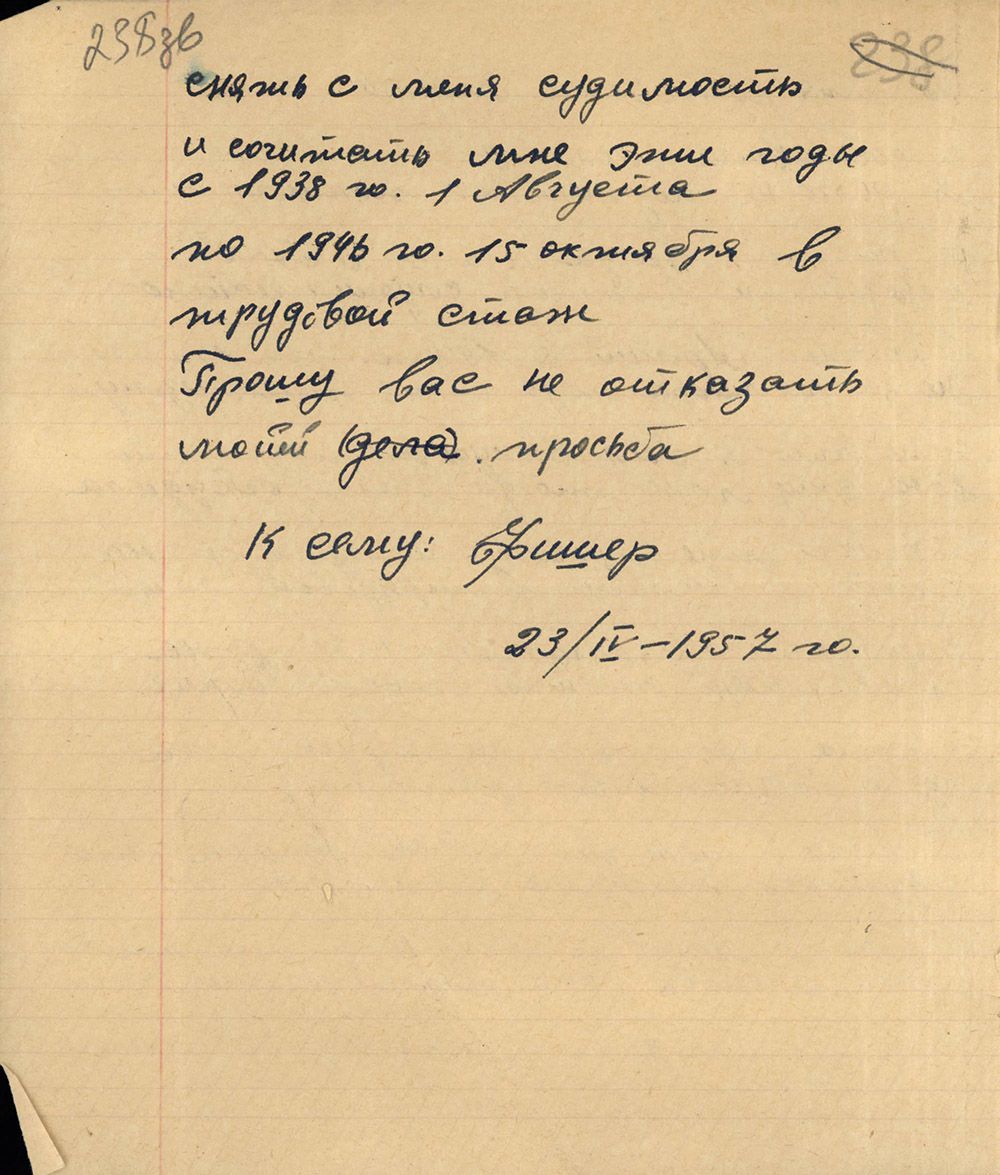 238зв
238
снять с меня судимость
и сочитать мне эти годы
с 1938 го. 1 Августа
по 1946 го. 15 октября в
трудовой стаж
Прошу вас не отказать
моией (дела). просьба
К сему: Фишер
23/IV-1957 го.